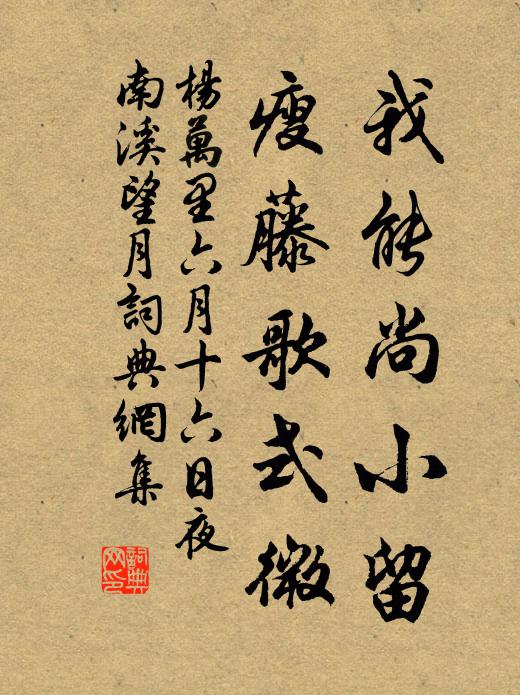 我能尚小留
瘦藤歌式微
楊萬里六月十六日夜
南溪望月詞典網集
詞典網印